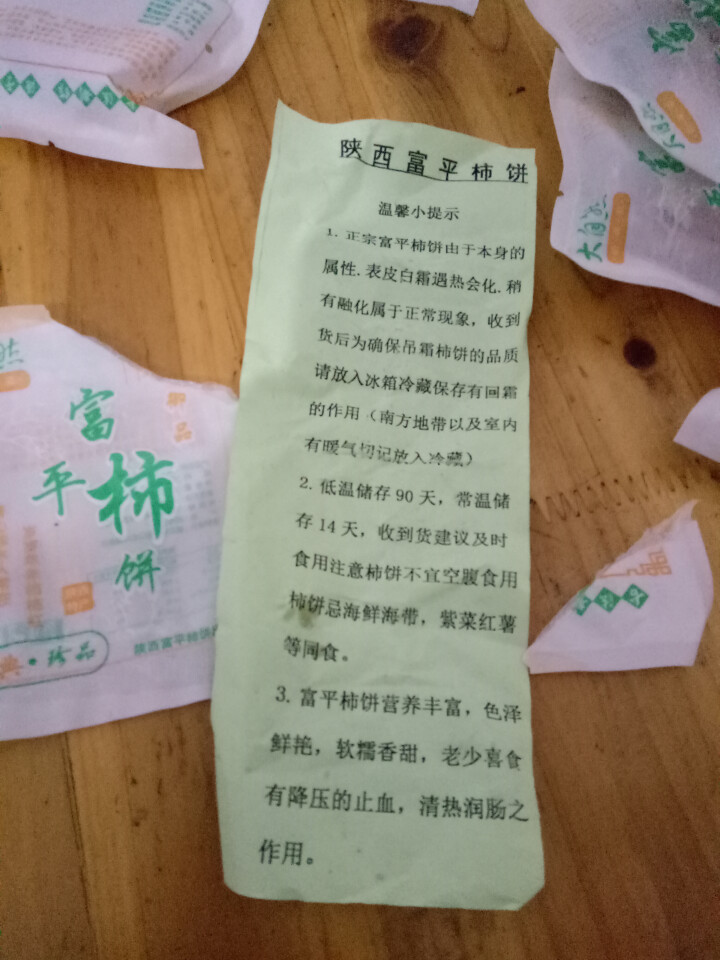 陕西富平柿饼
温馨小提示
1. 正宗富平柿饼由于本身的
属性.表皮白霜遇热会化.稍
有融化属于正常现象，收到
货后为确保吊霜柿饼的品质
请放入冰箱冷藏保存有回霜
的作用（南方地带以及室内
有暖气切记放入冷藏）
2. 低温储存90天，常温储
存14天，收到货建议及时
食用注意柿饼不宜空腹食用
柿饼忌海鲜海带，紫菜红薯
等同食。
3. 富平柿饼营养丰富，色泽
鲜艳，软糯香甜，老少喜食
有降压的止血，清热润肠之
作用。
富
平
柿
饼
典·珍品
陕西富平柿饼
大自然